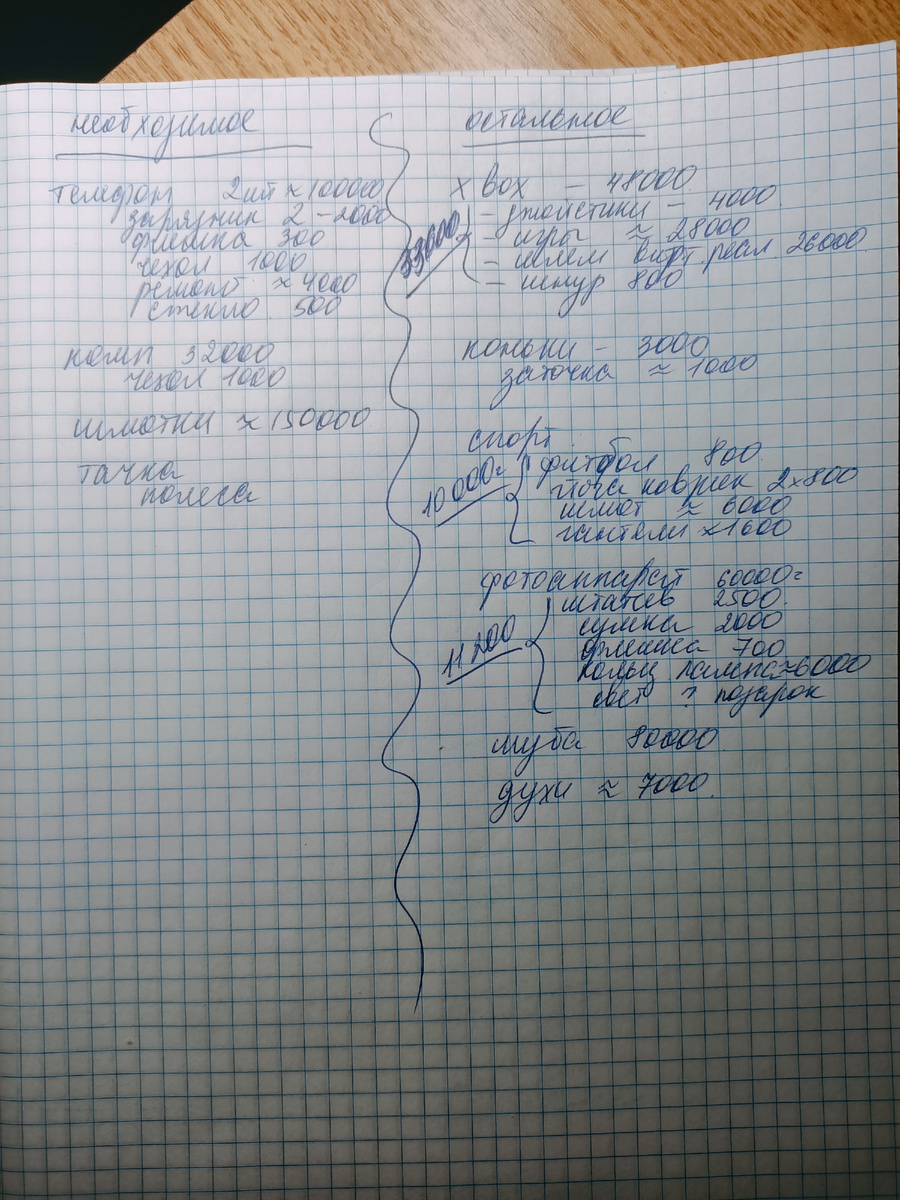 необходимое
телефон 2шт ≈ 100000
зарядник 2 - 2000
флешка 300
чехол 1000
ремонт ≈ 4000
стекло 500
комп 32000
чехол 1000
шмотки ≈ 150000
тачка
колеса
остальное
x box - 48000
33600
- джойстики - 4000
- игры ≈ 28000
- шлем вирт. реал. 26000
- шнур 800
коньки - 3000
заточка ≈ 1000
спорт
10 000=
фитбол 800
йога коврик 2x800
шмот ≈ 6000
гантели ≈ 1600
фотоаппарат 60000=
11 200
штатив 2500
сумка 2000
флешка 700
кольц лампа ≈ 6000
свет ? подарок
шуба 80000
духи ≈ 7000